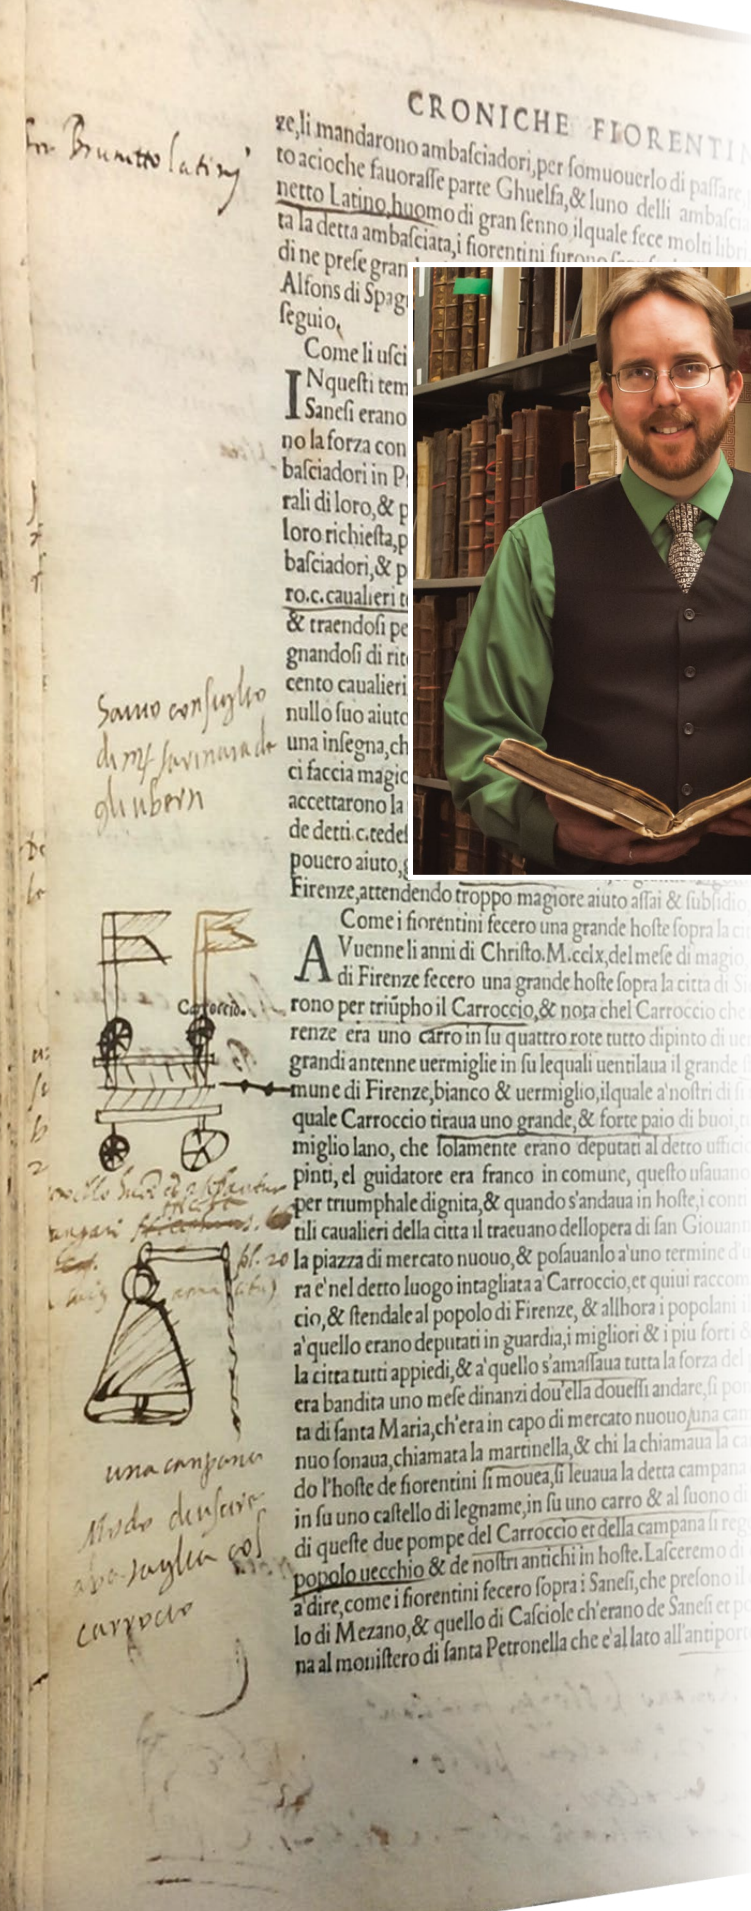 Ser Brunetto latinj
CRONICHE FIORENTIN
ze,li mandarono ambaſciadori,per ſomuouerlo di paſſare
to acioche fauoraſſe parte Ghuelfa,& luno delli ambaſcia
netto Latino huomo di gran ſenno ilquale fece molti libri
ta la detta ambaſciata,i fiorentini furono
di ne preſe gran
Alfons di Spag
ſeguio,
Come li uſci
INqueſti tem
Saneſi erano
no la forza con
baſciadori in P
rali di loro,& p
loro richieſta,p
baſciadori,& p
ro.c.caualieri t
& traendoſi pe
gnandoſi di rito
cento caualieri
nullo ſuo aiuto
una inſegna,ch
ci faccia magio
accettarono la
de detti.c.tedeſ
pouero aiuto,g
Firenze,attendendo troppo magiore aiuto aſſai & ſubſidio
Sauio conſiglio
di mſ farinata de
gli uberti
Come i fiorentini fecero una grande hoſte ſopra la ci
AVuenne li anni di Chriſto.M.cclx,del meſe di magio
di Firenze fecero una grande hoſte ſopra la citta di Si
rono per triũpho il Carroccio,& nota chel Carroccio che
renze era uno carro in ſu quattro rote tutto dipinto di uer
grandi antenne uermiglie in ſu lequali uentilaua il grande
mune di Firenze,bianco & uermiglio,ilquale a'noſtri di ſi
quale Carroccio tiraua uno grande,& forte paio di buoi,
miglio lano, che ſolamente erano deputati al detto ufficio
pinti, el guidatore era franco in comune, queſto uſauano
per triumphale dignita,& quando s'andaua in hoſte,i conti
tili caualieri della citta il traeuano dellopera di ſan Giouan
la piazza di mercato nuouo,& poſauanlo a'uno termine
ra e'nel detto luogo intagliata a'Carroccio,et quiui raccom
cio,& ſtendale al popolo di Firenze, & allhora i popolani
a'quello erano deputati in guardia,i migliori & i piu forti
la citta tutti appiedi,& a'quello s'amaſſaua tutta la forza del
era bandita uno meſe dinanzi dou'ella doueſſi andare,ſi pon
ta di ſanta Maria,ch'era in capo di mercato nuouo,una cam
nuo ſonaua,chiamata la martinella,& chi la chiamaua la ca
do l'hoſte de fiorentini ſi mouea,ſi leuaua la detta campana
in ſu uno caſtello di legname,in ſu uno carro & al ſuono di
di queſte due pompe del Carroccio et della campana ſi reg
popolo uecchio & de noſtri antichi in hoſte.Laſceremo di
a'dire,come i fiorentini fecero ſopra i Saneſi,che preſono il
lo di Mezano,& quello di Caſciole ch'erano de Saneſi et po
na al moniſtero di ſanta Petronella che e'al lato all'antiport
Carroccio.
pl. 20
una campana
Modo di uſcire
a battaglia col
carrocio